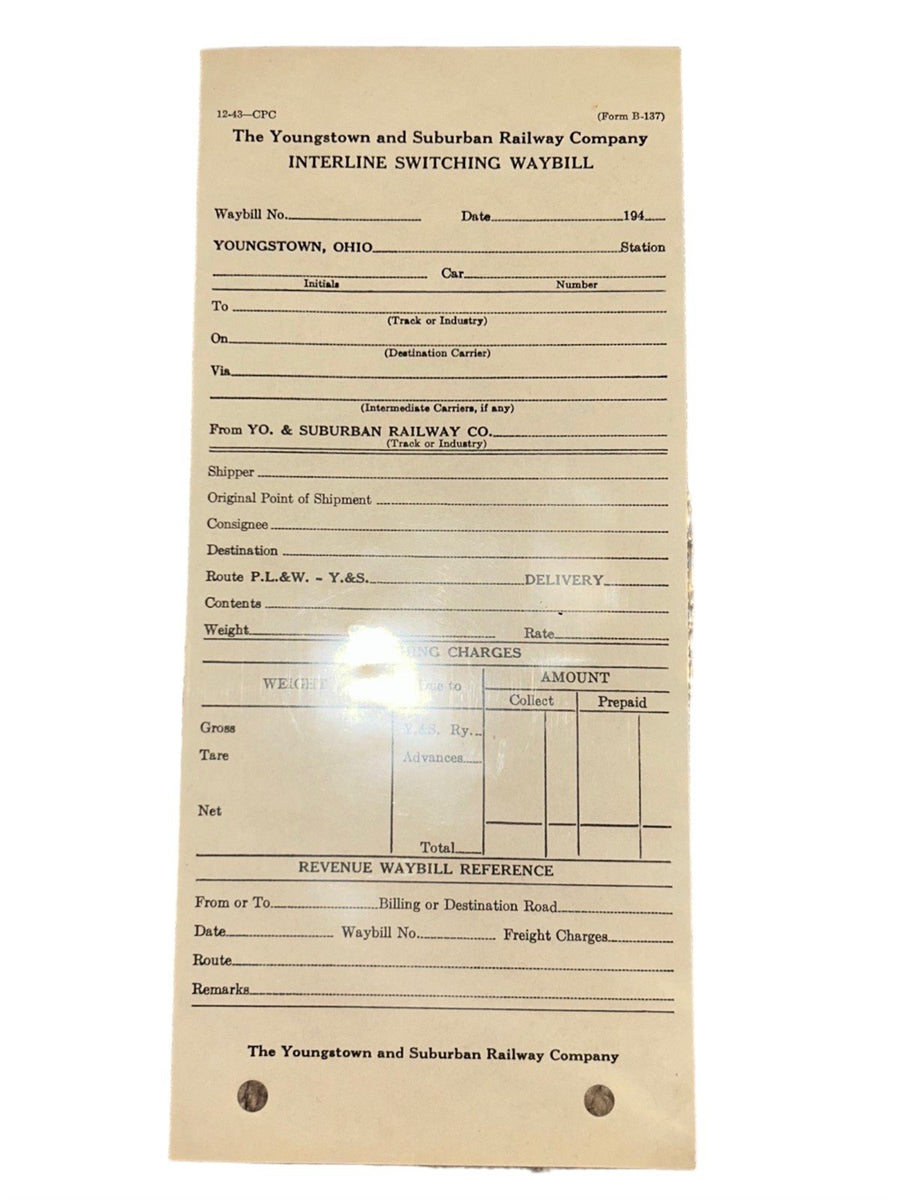 12-43—CPC (Form B-137)
The Youngstown and Suburban Railway Company
INTERLINE SWITCHING WAYBILL
Waybill No. Date 194
YOUNGSTOWN, OHIO Station
Car
Initials Number
To
(Track or Industry)
On
(Destination Carrier)
Via
(Intermediate Carriers, if any)
From YO. & SUBURBAN RAILWAY CO.
(Track or Industry)
Shipper
Original Point of Shipment
Consignee
Destination
Route P.L.&W. - Y.&S. DELIVERY
Contents
Weight Rate
CHARGES
WEIGHT Due to AMOUNT
Collect Prepaid
Gross Y.&S. Ry.
Tare Advances
Net
Total
REVENUE WAYBILL REFERENCE
From or To Billing or Destination Road
Date Waybill No. Freight Charges
Route
Remarks
The Youngstown and Suburban Railway Company